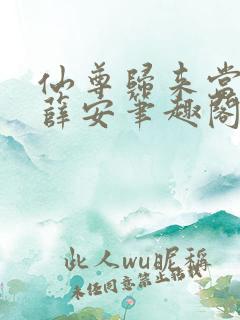 仙尊归来当
薛安笔趣阁
此人wu昵称
未经同意禁止转载